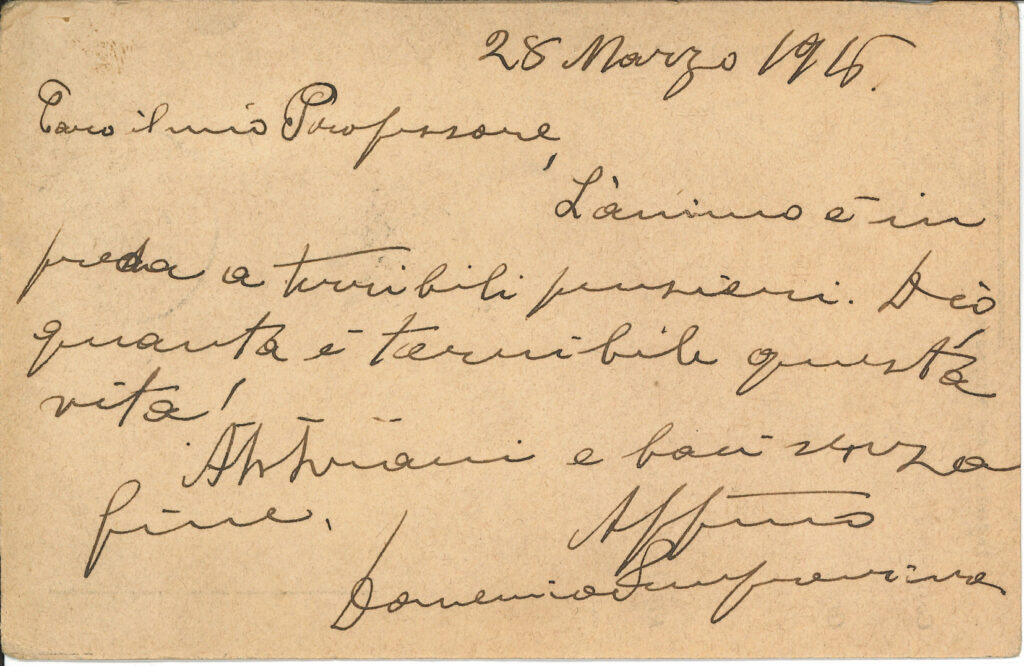 28 Marzo 1916.
Caro il mio Professore,
L'animo è in
preda a terribili pensieri. Dio
quanta è terribile questa
vita!
Abbracci e baci senza
fine.
Affmo
Domenico